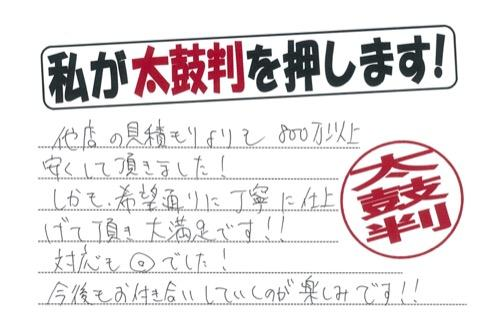 私が太鼓判を押します!
他店の見積もりよりも 800万以上
安くして頂きました!
しかも、希望通りに丁寧に仕上
げて頂き大満足です!!
対応も◎でした!
今後もお付き合いしていくのが楽しみです!!
太鼓判